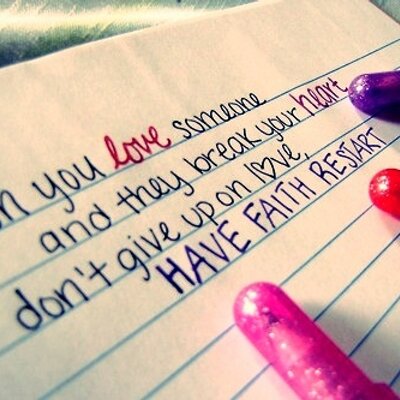 n you love someone
and they break your heart
don't give up on l♡ve,
HAVE FAITH RESTART